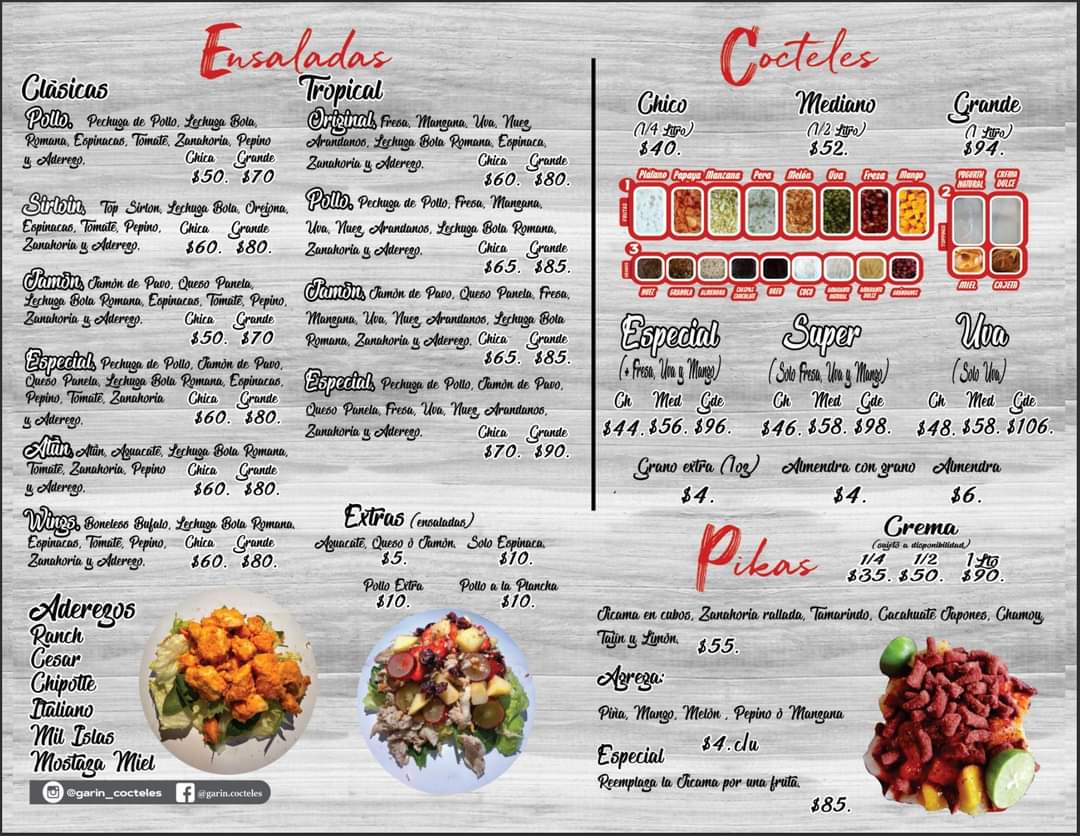 Ensaladas
Clàsicas
Pollo, Pechuga de Pollo, Lechuga Bola,
Romana, Espinacas, Tomate, Zanahoria, Pepino
y Aderezo.
Chica Grande
$50. $70
Sirloin, Top Sirlon, Lechuga Bola, Orejona,
Espinacas, Tomate, Pepino,
Zanahoria y Aderezo.
Chica Grande
$60. $80.
Jamòn, Jamòn de Pavo, Queso Panela,
Lechuga Bola Romana, Espinacas, Tomate, Pepino,
Zanahoria y Aderezo.
Chica Grande
$50. $70
Especial, Pechuga de Pollo, Jamòn de Pavo,
Queso Panela, Lechuga Bola Romana, Espinacas,
Pepino, Tomate, Zanahoria
y Aderezo.
Chica Grande
$60. $80.
Atùn, Atùn, Aguacate, Lechuga Bola Romana,
Tomate, Zanahoria, Pepino
y Aderezo.
Chica Grande
$60. $80.
Wings, Boneless Bufalo, Lechuga Bola Romana,
Espinacas, Tomate, Pepino,
Zanahoria y Aderezo.
Chica Grande
$60. $80.
Tropical
Original, Fresa, Manzana, Uva, Nuez
Arandanos, Lechuga Bola Romana, Espinaca,
Zanahoria y Aderezo.
Chica Grande
$60. $80.
Pollo, Pechuga de Pollo, Fresa, Manzana,
Uva, Nuez Arandanos, Lechuga Bola Romana,
Zanahoria y Aderezo.
Chica Grande
$65. $85.
Jamòn, Jamòn de Pavo, Queso Panela, Fresa,
Manzana, Uva, Nuez Arandanos, Lechuga Bola
Romana, Zanahoria y Aderezo.
Chica Grande
$65. $85.
Especial, Pechuga de Pollo, Jamòn de Pavo,
Queso Panela, Fresa, Uva, Nuez Arandanos,
Zanahoria y Aderezo.
Chica Grande
$70. $90.
Extras (ensaladas)
Aguacate, Queso ò Jamòn. Solo Espinaca.
$5. $10.
Pollo Extra Pollo a la Plancha
$10. $10.
Aderezos
Ranch
Cesar
Chipotle
Italiano
Mil Islas
Mostaza Miel
@garin_cocteles @garin.cocteles
Cocteles
Chico Mediano Grande
(1/4 Litro) (1/2 Litro) (1 Litro)
$40. $52. $94.
1 FRUTAS
Platano Papaya Manzana Pera Melòn Uva Fresa Mango
2
YOGURTH NATURAL CREMA DULCE
MIEL CAJETA
3
NUEZ GRANOLA ALMENDRA CHISPAS CHOCOLATE OREO COCO AMARANTO NATURAL AMARANTO DULCE ARANDANOS
Especial Super Uva
(+ Fresa, Uva y Mango) (Solo Fresa, Uva y Mango) (Solo Uva)
Ch Med Gde Ch Med Gde Ch Med Gde
$44. $56. $96. $46. $58. $98. $48. $58. $106.
Grano extra (1oz) Almendra con grano Almendra
$4. $4. $6.
Crema
(sujeto a disponibilidad)
1/4 1/2 1 Lto
$35. $50. $90.
Pikas
Jicama en cubos, Zanahoria rallada, Tamarindo, Cacahuate Japones, Chamoy,
Tajin y Limòn. $55.
Agrega:
Piña, Mango, Melòn , Pepino ò Manzana
$4.c/u
Especial
Reemplaza la Jicama por una fruta.
$85.